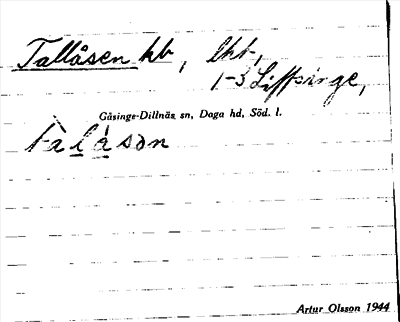 Tallåsen hb, lht,
1-3 Liffsinge,
Gåsinge-Dillnäs sn, Daga hd, Söd. l.
tàlåsən
Artur Olsson 1944